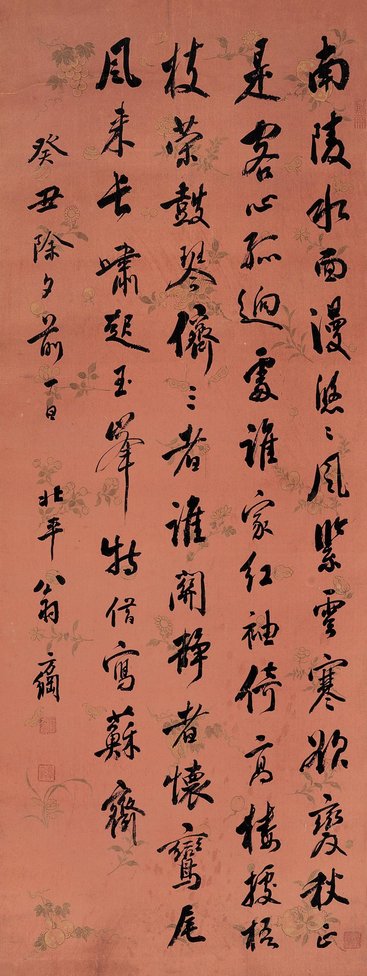 南陵水面漫悠〻風緊雲寒欲變秋正
是客心孤迥處誰家紅袖倚高樓據梧
枝策鼓琴儕三者誰開靜者懷鸞尾
風来長嘯起玉峯特借寫蘇齋
癸丑除夕前一日北平翁方綱